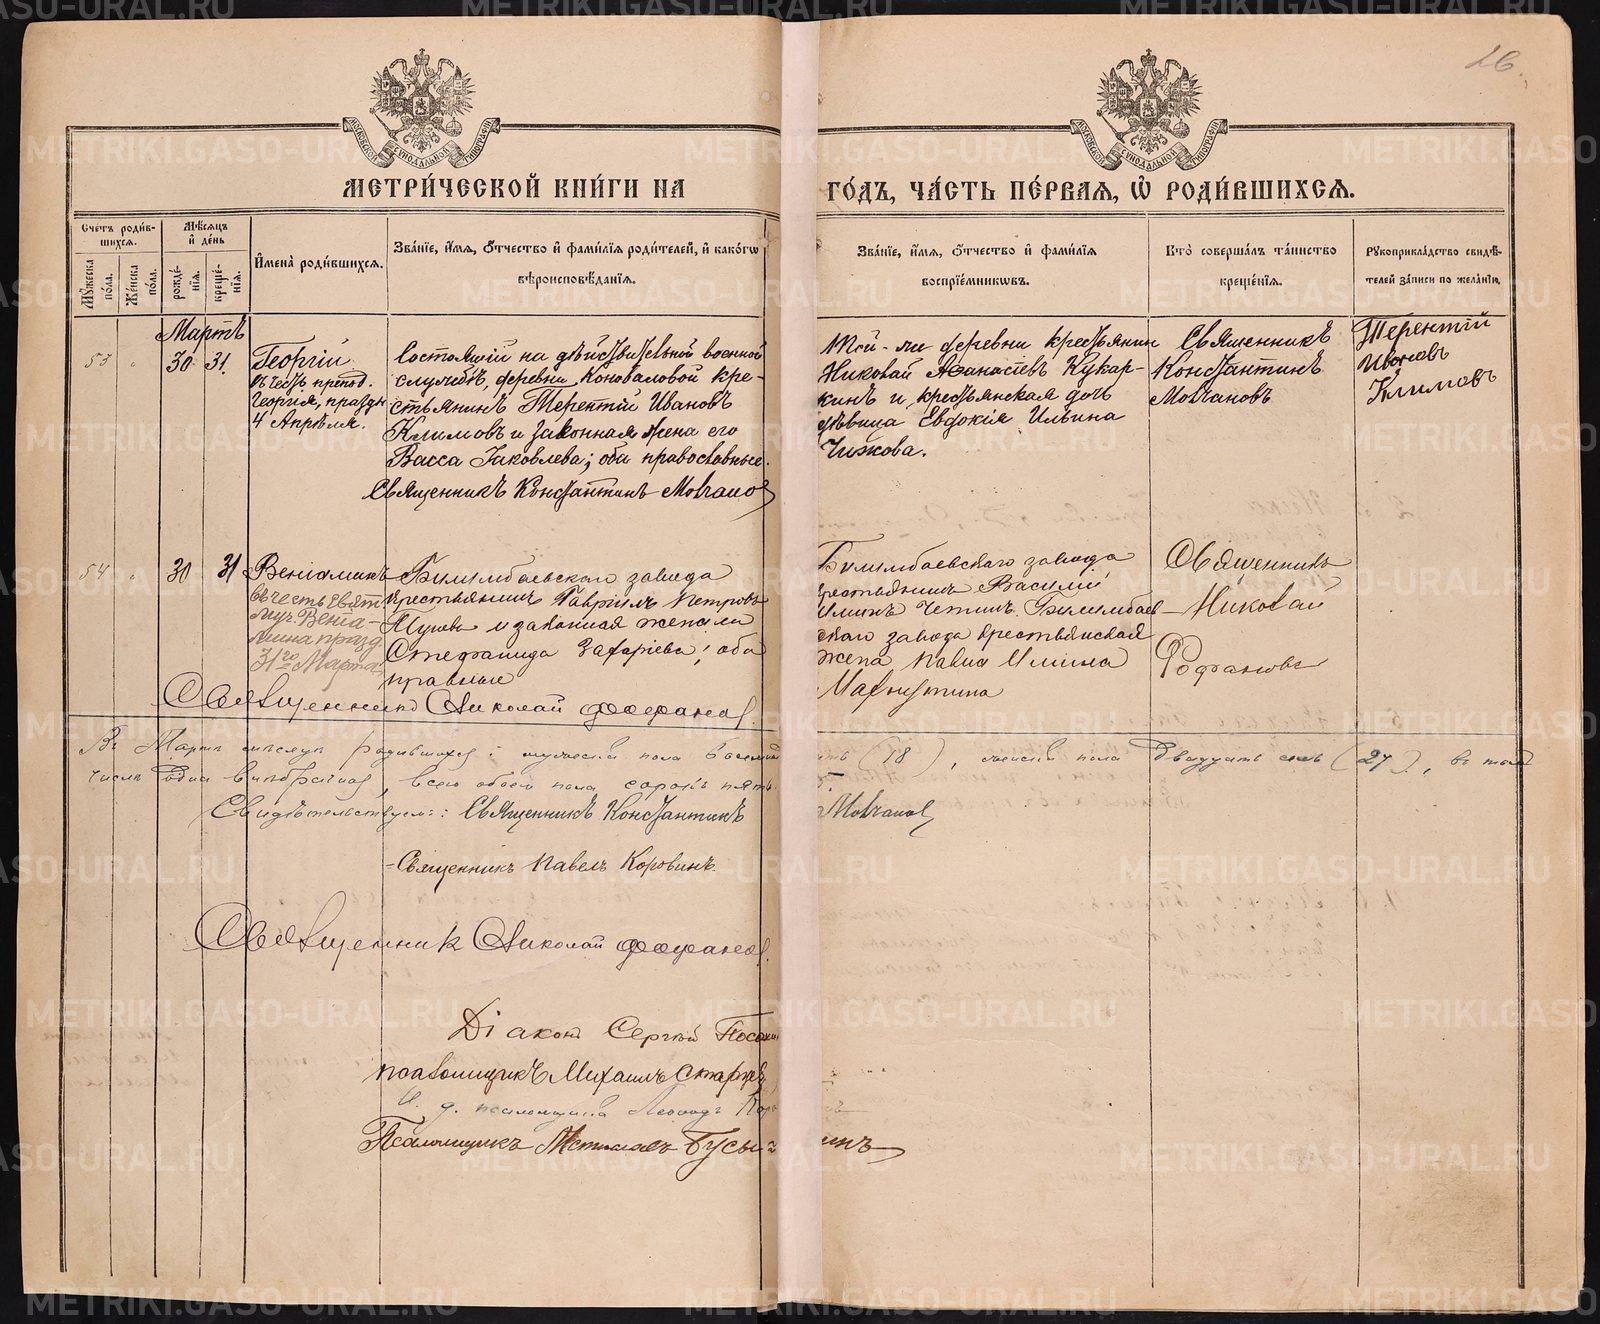 26.
МОСКОВСКОЙ СѴНОДАЛЬНОЙ ТИПОГРАФІИ
МОСКОВСКОЙ СѴНОДАЛЬНОЙ ТИПОГРАФІИ
МЕТРИ́ЧЕСКОЙ КНИ́ГИ НА
ГО́ДЪ, ЧА́СТЬ ПЕ́РВАЯ, Ѡ҆ РОДИ́ВШИХСЯ.
Счетъ роди́в-
шихся.
Мѣ́сяцъ
и҆ де́нь
Му́жеска
по́ла.
Же́нска
по́ла.
рожде́-
нїя.
креще́-
нїя.
И҆мена̀ роди́вшихся.
Зва́нїе, и҆́мя, ѻ҆́тчество и҆ фами́лїя роди́телей, и҆ како́гѡ
вѣроисповѣ́данїя.
Зва́нїе, и҆́мя, ѻ҆́тчество и҆ фами́лїя
воспрїе́мникѡвъ.
Кто̀ соверша́лъ та́инство
креще́нїя.
Рꙋкоприкла́дство свидѣ́-
телей за́писи по жела́нїю.
Мартъ
53 " 30 31.
Георгій
въ честь препод.
Георгія, праздн.
4 Апрѣля.
Состоящій на дѣйствительной военной
службѣ, деревни Коноваловой кре-
стьянинъ Терентій Ивановъ
Климовъ и законная жена его
Васса Іаковлева; оба православные.
Священникъ Константинъ Молчанов
Той-же деревни крестьянин
Николай Аѳанасіевъ Кукар-
кинъ и крестьянская дочь
дѣвица Евдокія Ильина
Чижова.
Священникъ
Константинъ
Молчановъ
Терентій
Ивановъ
Климовъ
54 " 30 31
Веніаминъ
въ честь свят.
муч. Веніа-
мина празд.
31го Марта
Билимбаевскаго завода
крестьянинъ Гавріилъ Петровъ
и законная жена его
Стефанида Захаріева; оба
правные
Священникъ Николай Фофанов.
Билимбаевскаго завода
крестьянинъ Василій
Билимбаев-
скаго завода крестьянская
жена
Священникъ
Николай
Фофановъ
Въ Мартѣ мѣсяцѣ родившихся: мужеска пола восемнад-
цать (18), женска пола двадцать семь (27), въ томъ
числѣ одна внѣбрачная, всего обоего пола сорокъ пять
Свидѣтельствуемъ: Священникъ Константинъ
Молчанов
Священникъ Павелъ Коровинъ.
Священник Николай Фофанов.
Діаконъ Сергій
Псаломщикъ Михаилъ
И. д. псаломщика Леонидъ
Псаломщикъ